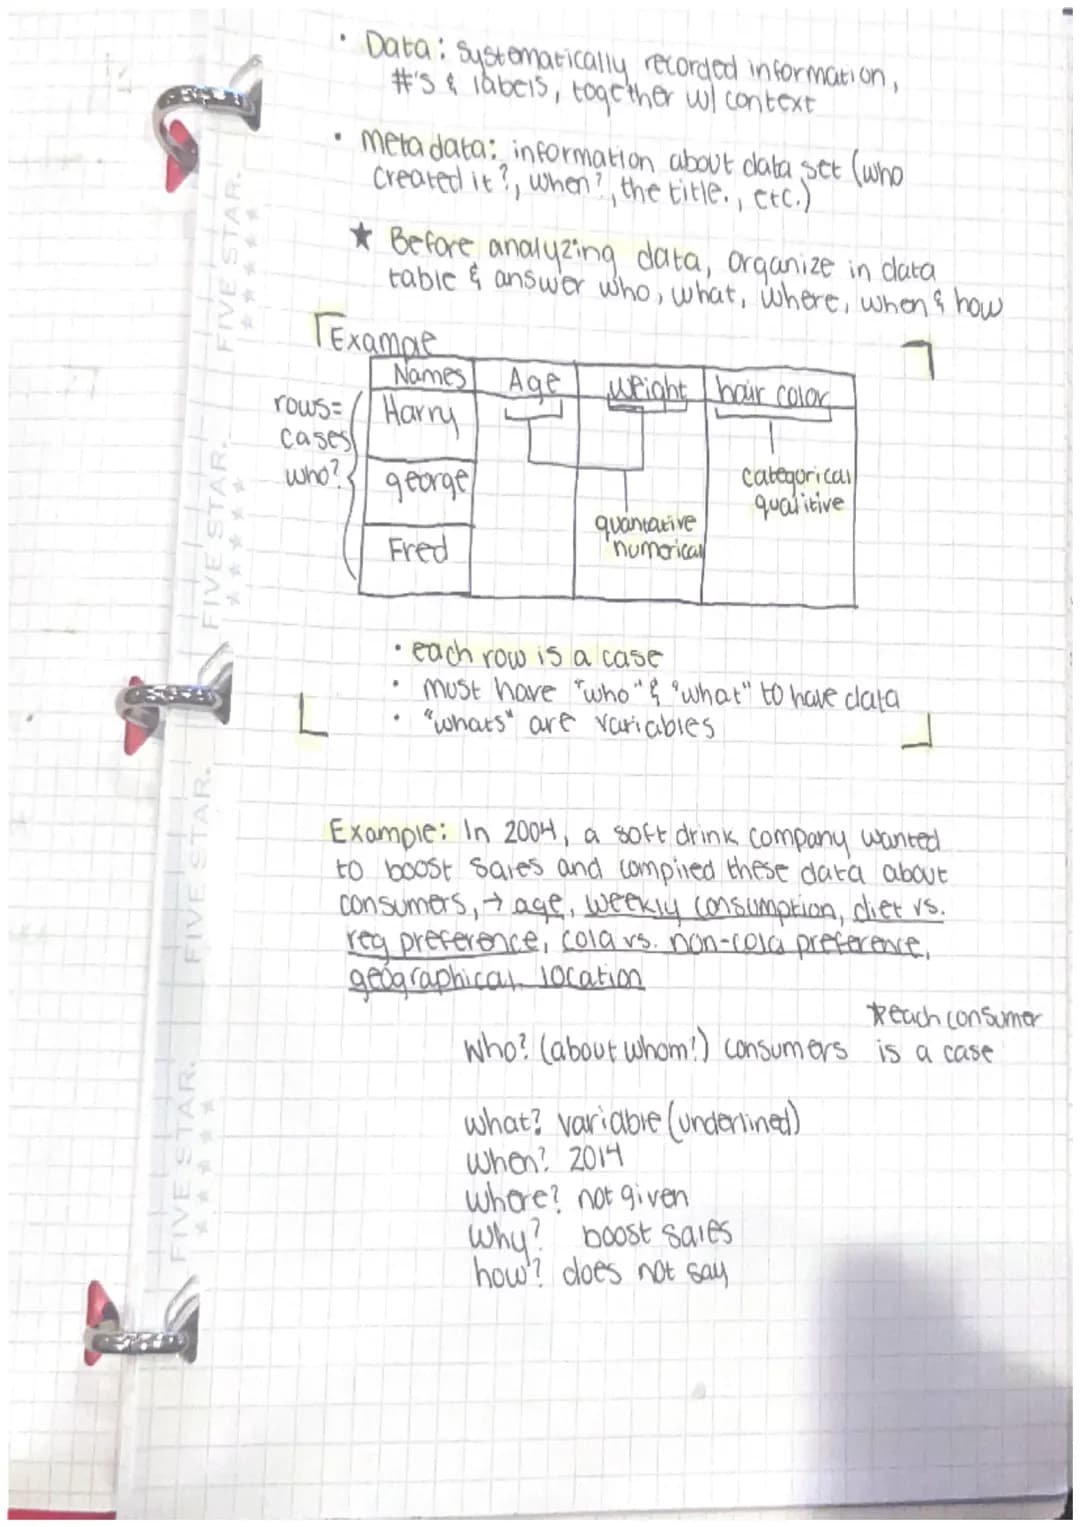 • Data: Systematically recorded information,
#'s & labels, together w/ context
• metadata: information about data set (who
created it?, when?, the title., etc.)
★ Before analyzing data, organize in data
table & answer who, what, where, when & how
Example
Names Age weight hair color
rows= Harry
cases
who? george categorical
qualitive
quantative
Fred numerical
• each row is a case
• must have "who" & "what" to have data
• "whats" are variables
Example: In 2004, a soft drink company wanted
to boost sales and compired these data about
consumers, → age, weekly consumption, diet vs.
reg preference, cola vs. non-cola preference,
geographical location
*each consumer
who? (about whom!) consumers is a case
what? variable (underlined)
when? 2014
where? not given
why? boost sales
how? does not say
FIVE STAR.
FIVE STAR.
FIVE STAR.
FIVE STAR.